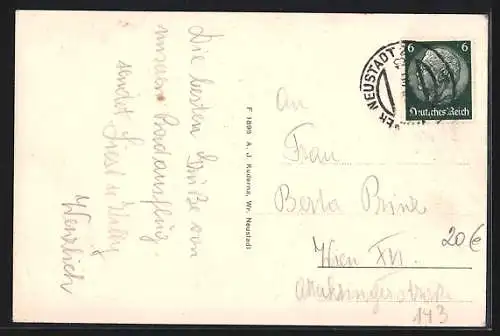 Die besten Grüße von
unserem Radausflug
sendet
Wenzlich
F 1899 A. J. Kuderna, Wr. Neustadt
ER NEUSTADT
6 6
Deutsches Reich
An
Frau
Berta Prinz
Wien XVI.
143
20€